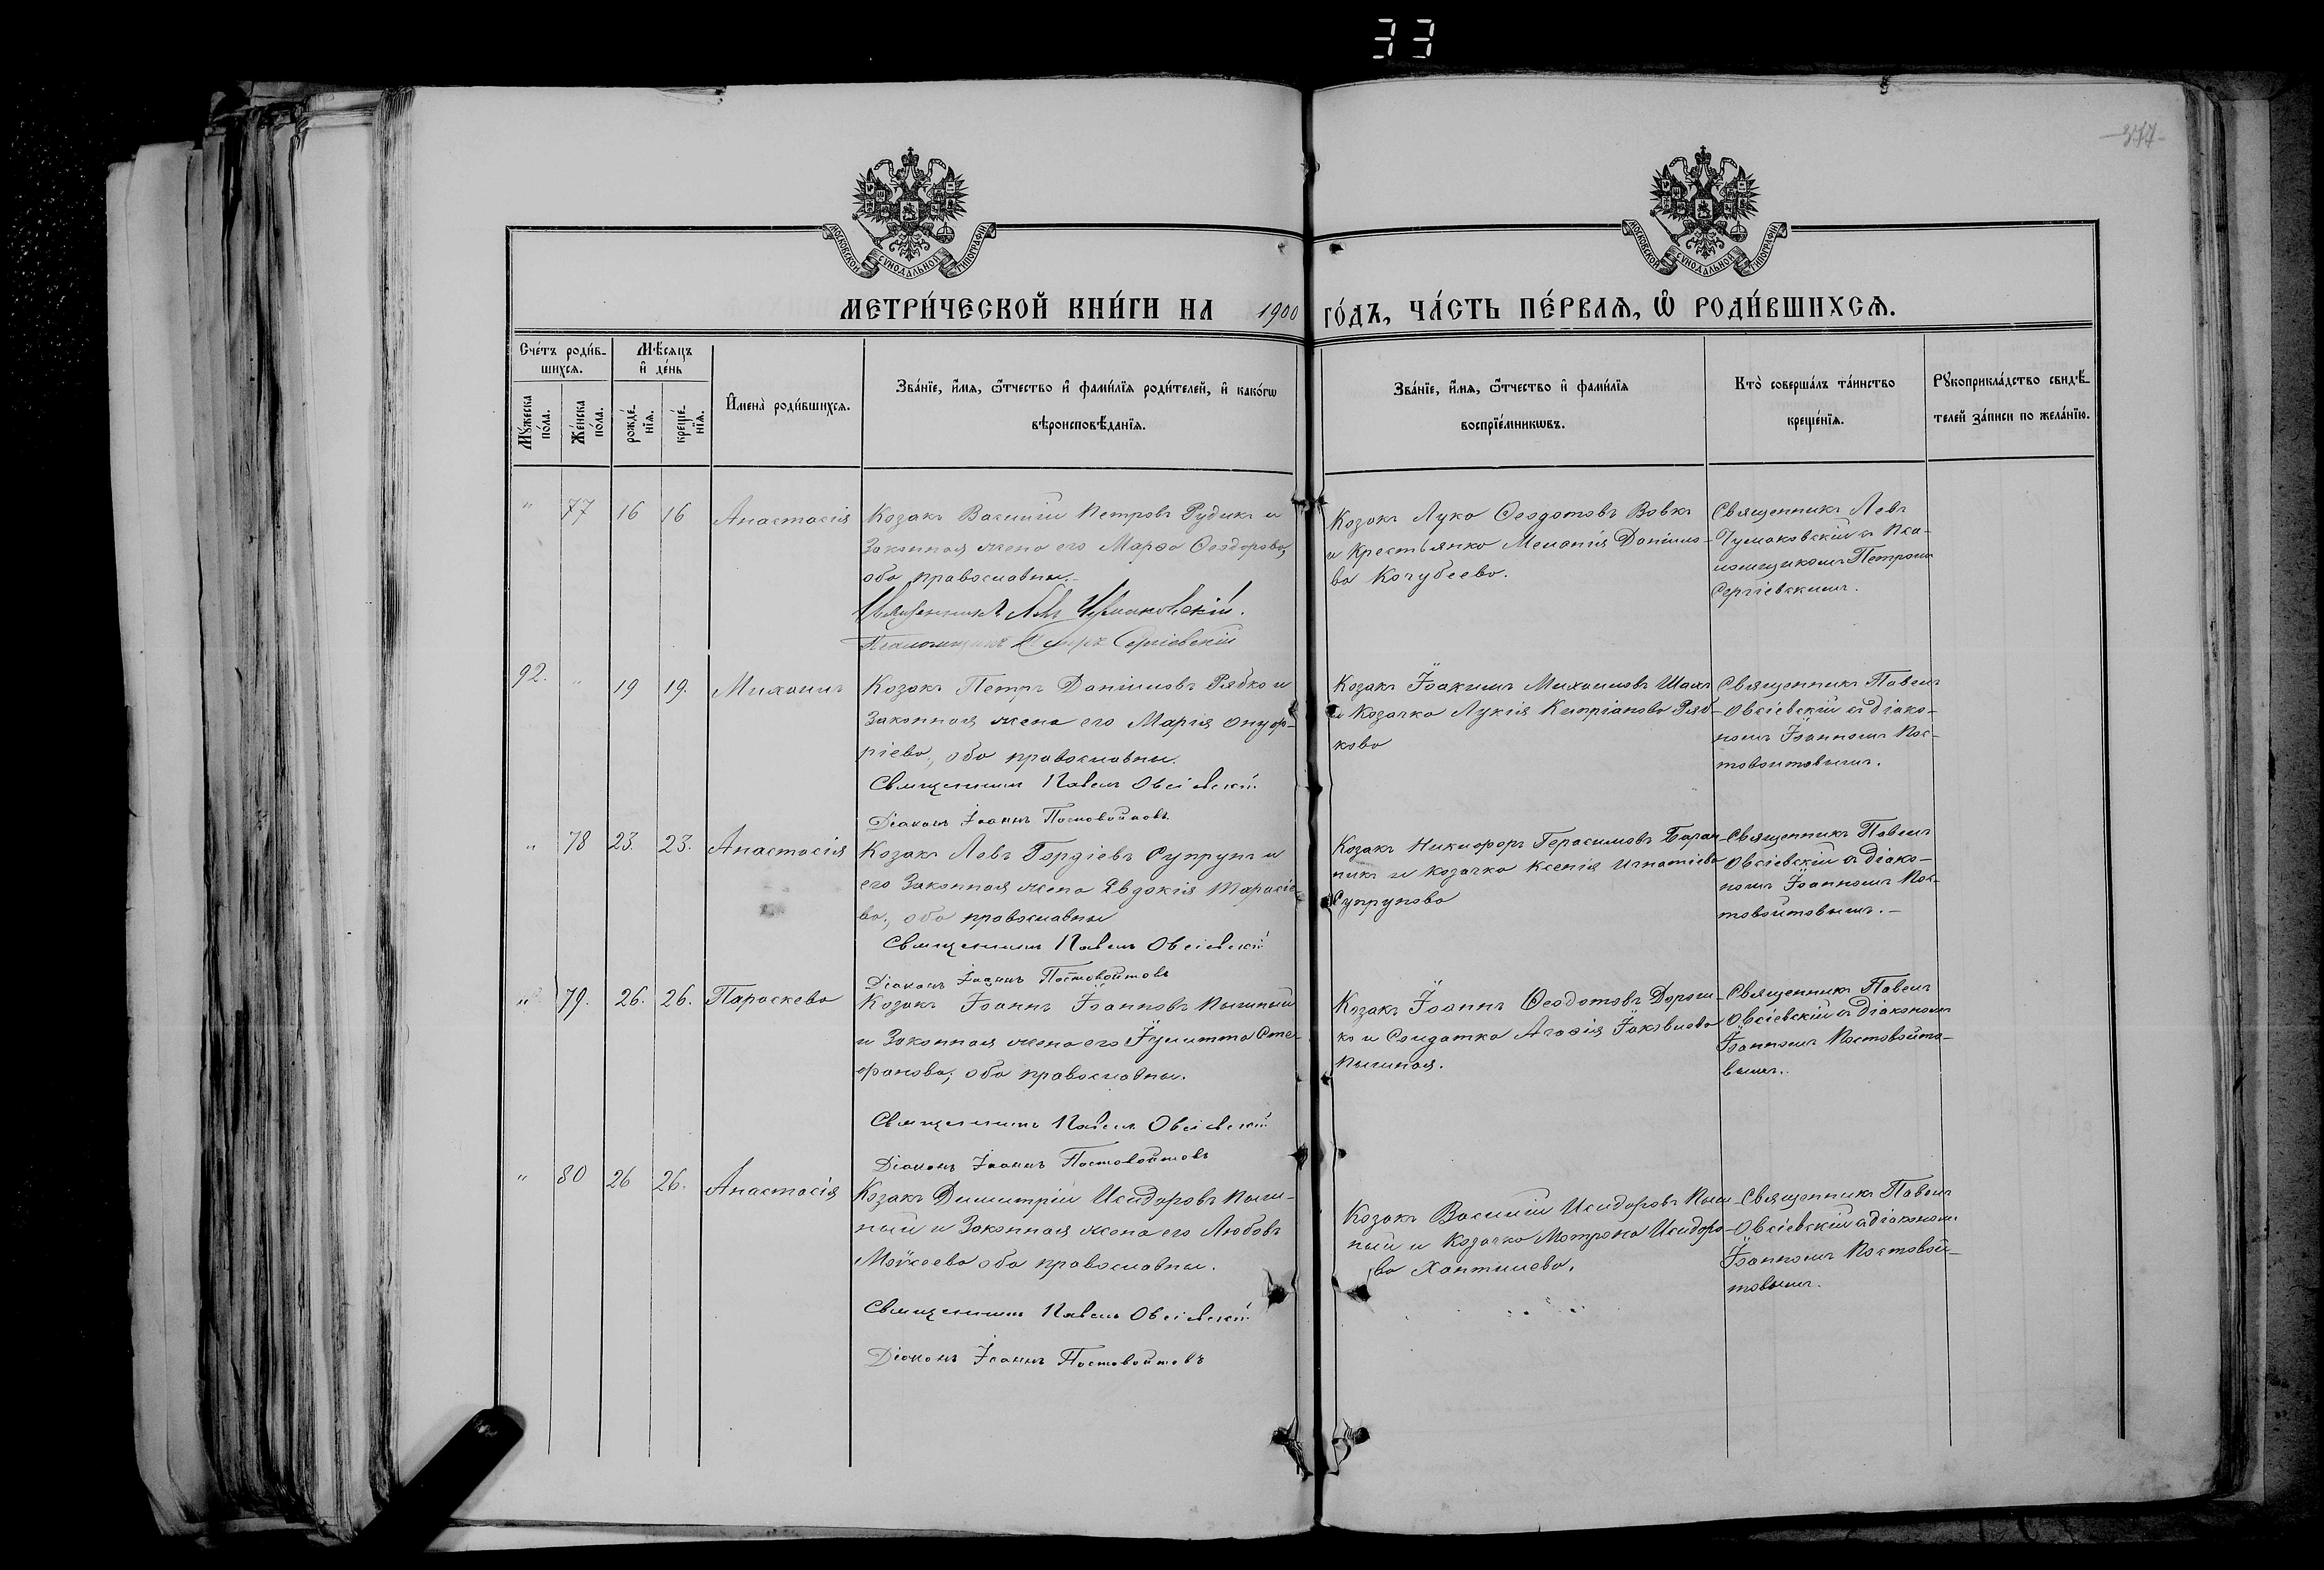 33
377
МОСКОВСКОЙ СѴНОДАЛЬНОЙ ТИПОГРАФІИ
МОСКОВСКОЙ СѴНОДАЛЬНОЙ ТИПОГРАФІИ
МЕТРИ́ЧЕСКОЙ КНИ́ГИ НА 1900 ГО́ДЪ, ЧА́СТЬ ПЕ́РВАѦ, Ѽ РОДИ́ВШИХСѦ.
Сче́тъ роди́в-
шихсѧ.
Мꙋ́жеска
по́ла.
Же́нска
по́ла.
Мѣ́сяцъ
и҆ де́нь
рожде́-
нїѧ.
креще́-
нїѧ.
И҆мена̀ роди́вшихсѧ.
Зва́нїе, и҆́мѧ, ѻ҆́тчество и҆ фами́лїѧ роди́телей, и҆ како́гѡ
вѣроисповѣ́данїѧ.
Зва́нїе, и҆́мѧ, ѻ҆́тчество и҆ фами́лїѧ
воспрїе́мникѡвъ.
Кто̀ соверша́лъ та́инство
креще́нїѧ.
Рꙋкоприкла́дство свидѣ́-
телей за́писи по жела́нїю.
" 77 16 16 Анастасія
Козакъ Василій Петровъ Рудикъ и
Законная жена его Марѳа Ѳеодорова,
оба православны.
Священникъ Левъ Чумаковскій.
Псаломщикъ Петръ Сергіевскій
Козакъ Лука Ѳеодотовъ Вовкъ
и крестьянка Меланія Даніило-
ва Кочубеева.
Священникъ Левъ
Чумаковскій съ пса-
ломщикомъ Петромъ
Сергіевскимъ.
92. " 19 19. Михаилъ
Козакъ Петръ Даніиловъ Рябко и
Законная жена его Марія Онуф-
ріева, оба православны.
Священникъ Павелъ Овсіевскій
Діаконъ Іоаннъ Постовойтовъ
Козакъ Іоакимъ Михаиловъ Шахъ
и Козачка Лукія Кипріанова Ряб-
кова
Священникъ Павелъ
Овсіевскій съ діако-
номъ Іоанномъ Пос-
товойтовымъ.
" 78 23. 23. Анастасія
Козакъ Левъ Гордіевъ Супрунъ и
его Законная жена Евдокія Тарасіе-
ва, оба православны
Священникъ Павелъ Овсіевскій
Діаконъ Іоаннъ Постовойтовъ
Козакъ Никифоръ Герасимовъ Баран-
никъ и козачка Ксенія Игнатіева
Супрунова
Священникъ Павелъ
Овсіевскій съ діако-
номъ Іоанномъ Пос-
товойтовымъ.-
" 79. 26. 26. Параскева
Козакъ Іоаннъ Іоанновъ Пышный
и Законная жена его Іулитта Сте-
фанова, оба православны.
Священникъ Павелъ Овсіевскій
Діаконъ Іоаннъ Постовойтовъ
Козакъ Іоаннъ Ѳеодотовъ Дорош-
ко и Солдатка Агафія Іаковлева
Пышная.
Священникъ Павелъ
Овсіевскій съ діакономъ
Іоанномъ Постовойто-
вымъ.
" 80 26 26. Анастасія
Козакъ Димитрій Исидоровъ Пыш-
ный и Законная жена его Любовь
Моѵсеева оба православны.
Священникъ Павелъ Овсіевскій
Діаконъ Іоаннъ Постовойтовъ
Козакъ Василій Исидоровъ Пыш-
ный и Козачка Мотрона Исидоро-
ва Хантилева.
Священникъ Павелъ
Овсіевскій съ діакономъ
Іоанномъ Постовой-
товымъ.